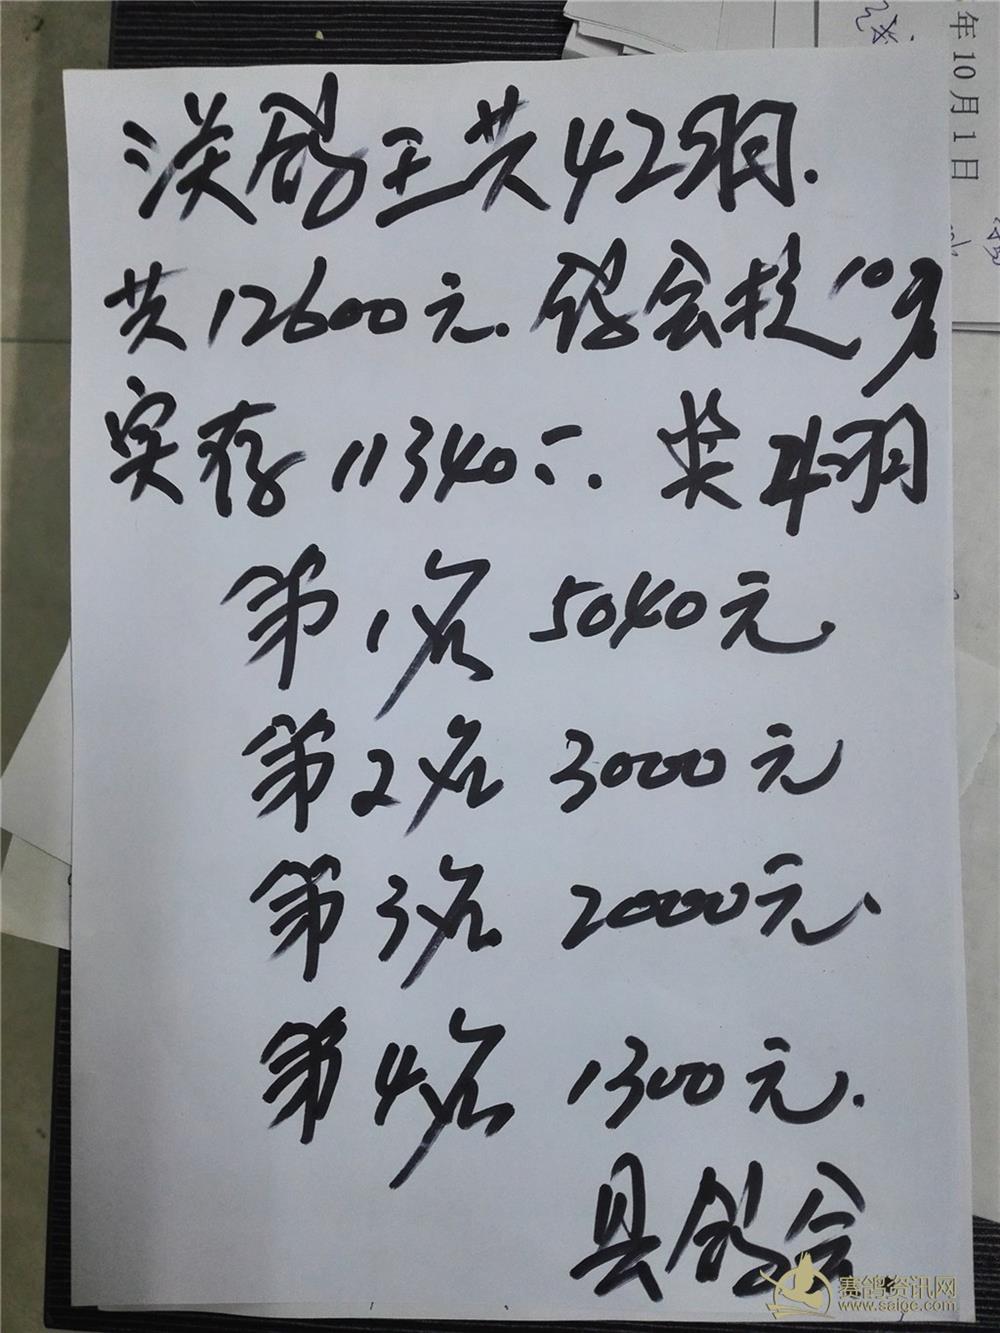 年10月1日
鸽王共42羽.
共12600元.鸽会提10%
实存11340元.奖4羽
第1名 5040元.
第2名 3000元
第3名 2000元.
第4名 1300元.
县鸽会
赛鸽资讯网
www.saigc.com